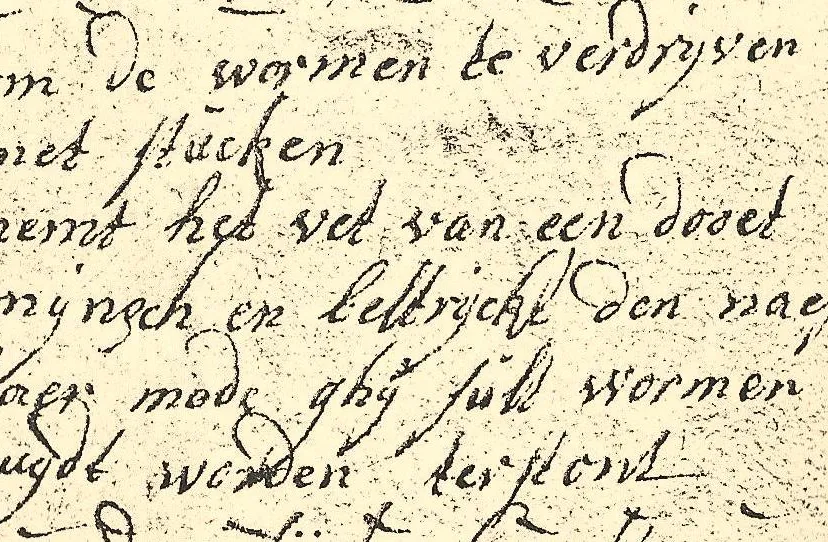 om de wormen te verdryven
met stücken
nemt het vet van een dooet
mÿnsch en bestryckt den nae
daer mede ghÿ sült wormen
uydt worden terstont